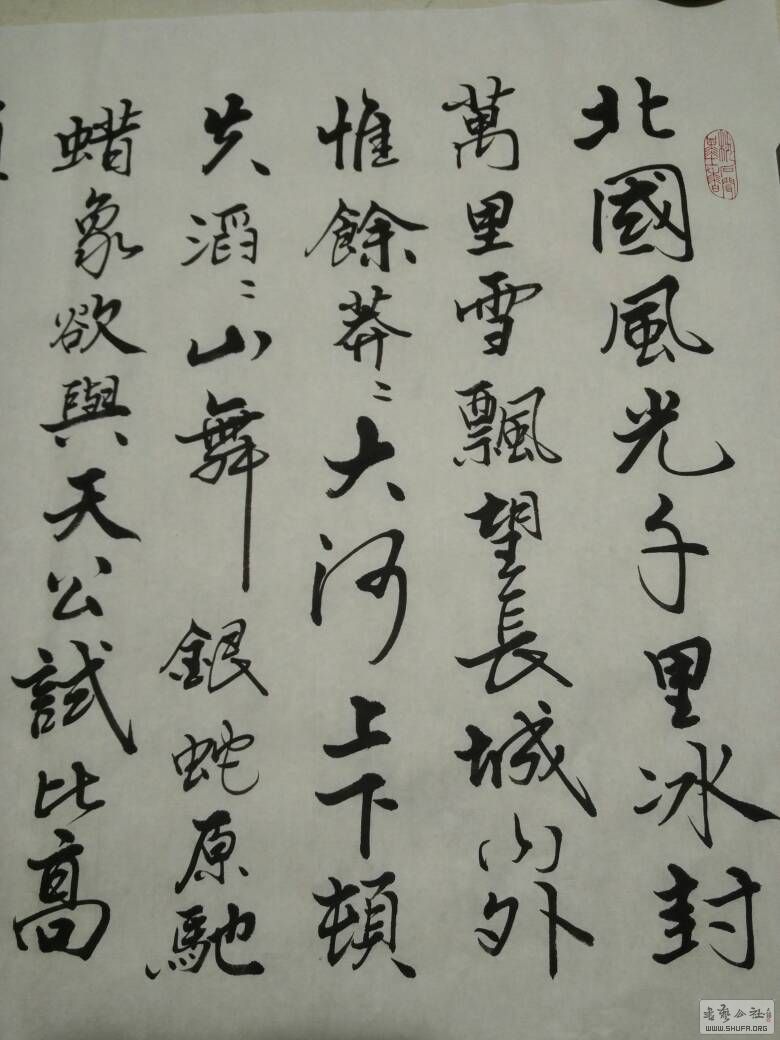 北國風光千里冰封
萬里雪飄望長城内外
惟餘莽〻大河上下頓
失滔〻山舞銀蛇原馳
蜡象欲與天公試比高
書藝公社
WWW.SHUFA.ORG